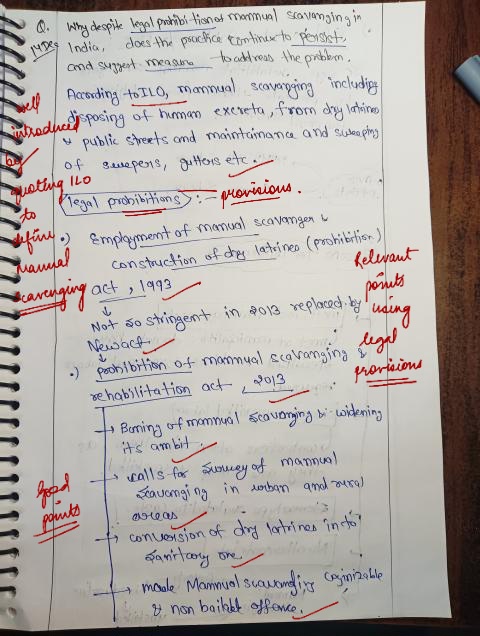 Q. Why despite legal prohibition of mannual scavanging in
14 Dec India, does the practice continue to persist,
and suggest measure to address the problem.
According to ILO, mannual scavanging including
disposing of human excreta, from dry latrines
& public streets and maintainance and sweeping
of sweepers, gutters etc.
well
introduced
by
quoting ILO
to
define
manual
scavenging
legal prohibitions :- provisions.
•) Employment of manual scavanger &
construction of dry latrines (prohibition)
act, 1993
↓
Not so stringent in 2013 replaced by
New act
Relevant
points
using
legal
provisions
•) prohibition of mannual scavanging &
rehabilitation act, 2013
→ Baning of mannual scavanging bi-widening
its ambit.
→ calls for survey of mannual
scavanging in urban and rural
areas
→ conversion of dry latrines into
sanitary one
→ made Mannual scavanging cognizable
& non bailable offence.
Good
points